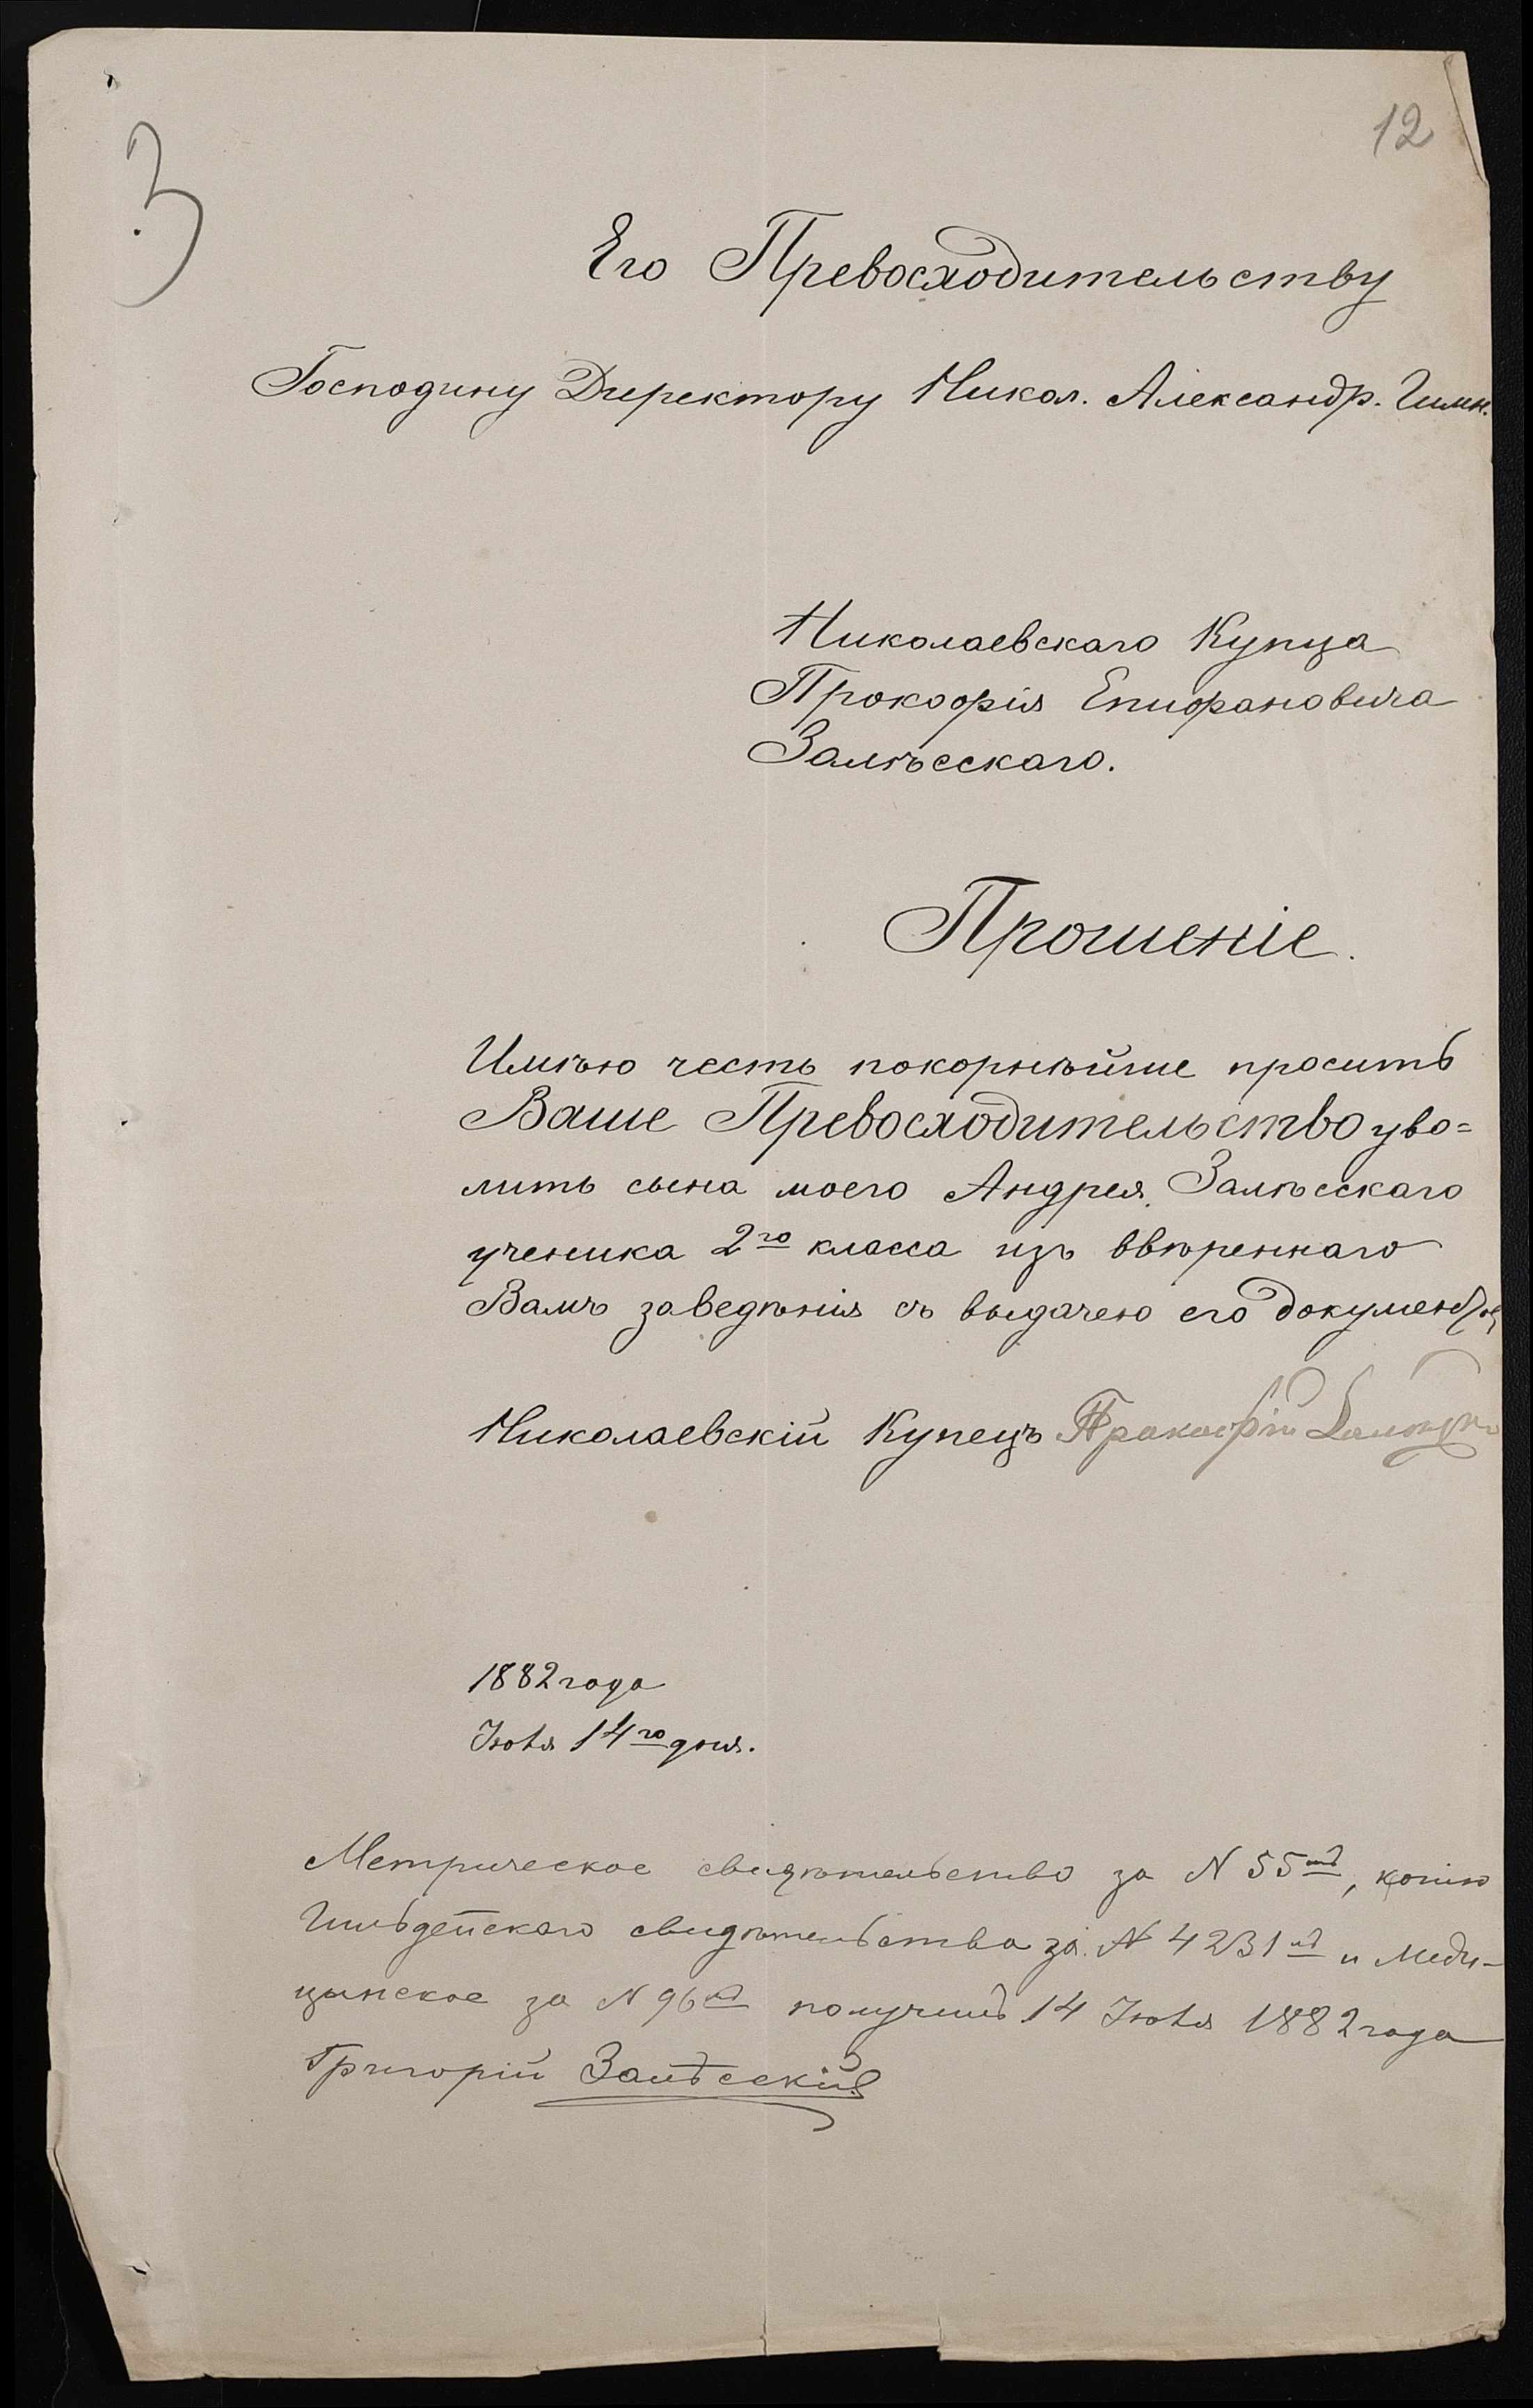 12
3
Его Превосходительству
Господину Директору Никол. Александр. Гимн.
Николаевскаго Купца
Прокофія Епифановича
Залѣсскаго.
Прошеніе.
Имѣю честь покорнѣйше просить
Ваше Превосходительство уво=
лить сына моего Андрея Залѣсскаго
ученика 2го класса изъ ввѣреннаго
Вамъ заведѣнія съ выдачею его документов
Николаевскій Купецъ Прокофій
1882 года
14го дня.
Метрическое свидѣтельство за N 55мъ, копію
Гильдейскаго свидѣтельства за N 4231мъ и меди-
цынское за N 96 получилъ 14 1882 года
Григорій Залѣсскій